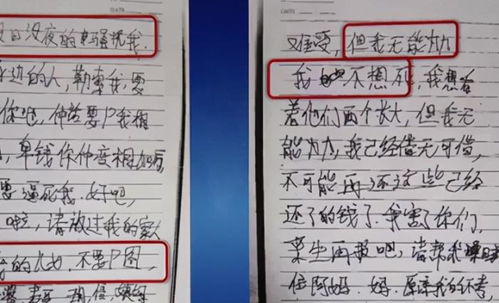 日没夜的骚扰我.
边的人,勒索我,要
你吧,仲话要P我相
卑钱你仲变相加
要逼死我,好吧,
啦,请放过我的家人
不要P图,
难受,但我无能为力
我不想死,我想看
着他们两个长大,但我无
能为力,我已经借无可借,
不可能再还这些已经
还了的钱了.我害了你们,
来生再报吧,请帮我
住阿妈.妈,原谅我的不孝